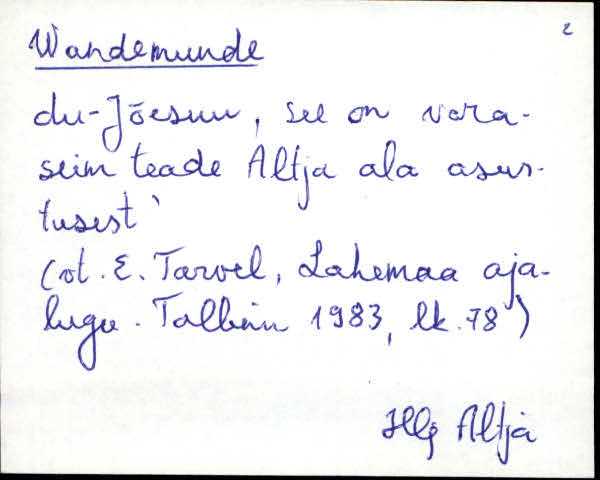 2
Wandemunde
du-Jõesuu, see on vara-
seim teade Altja ala asus-
tusest'
(vt. E. Tarvel, Lahemaa aja-
lugu. Tallinn 1983, lk. 78)
Hlj Altja